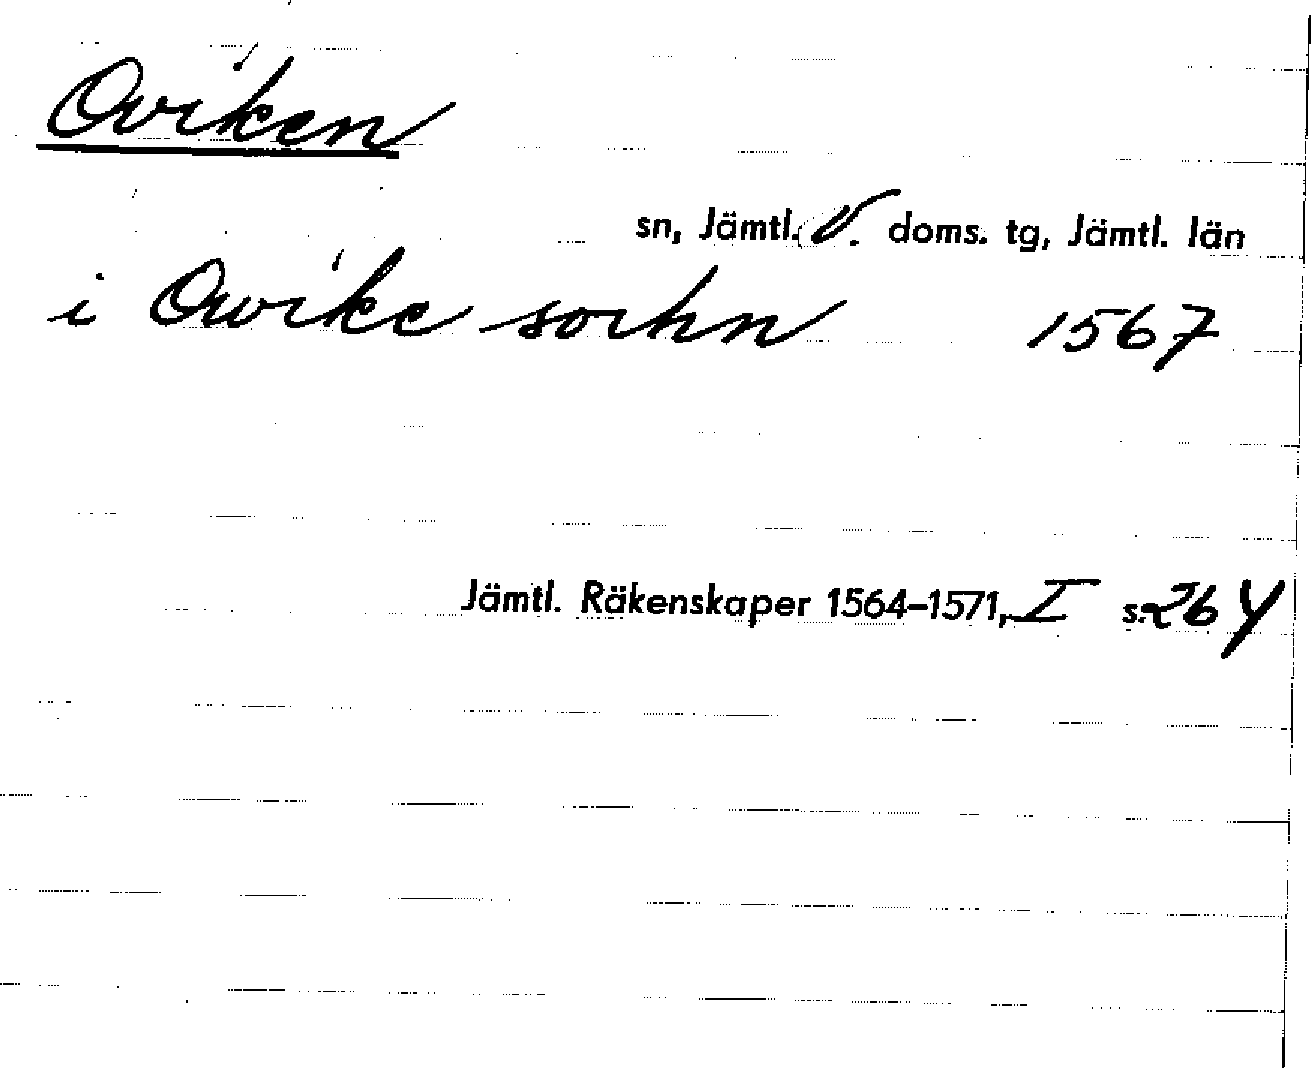 Oviken
sn, Jämtl. V. doms. tg, Jämtl. län
i Owike sochn 1567
Jämtl. Räkenskaper 1564–1571, I s. 264